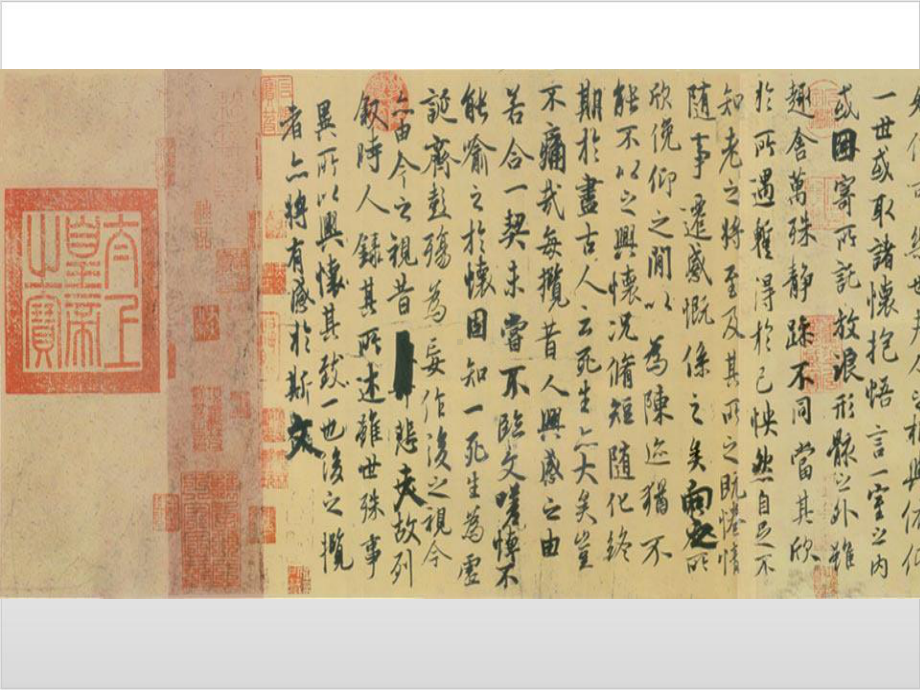 人之相與俯仰
一世或取諸懷抱悟言一室之內
或因寄所託放浪形骸之外雖
趣舍萬殊靜躁不同當其欣
於所遇暫得於己怏然自足不
知老之將至及其所之既惓情
隨事遷感慨係之矣向之所
欣俛仰之閒以為陳迹猶不
能不以之興懷況脩短隨化終
期於盡古人云死生亦大矣豈
不痛哉每攬昔人興感之由
若合一契未嘗不臨文嗟悼不
能喻之於懷固知一死生為虛
誕齊彭殤為妄作後之視今
亦由今之視昔悲夫故列
敘時人錄其所述雖世殊事
異所以興懷其致一也後之攬
者亦將有感於斯文
太上
皇帝
之寶